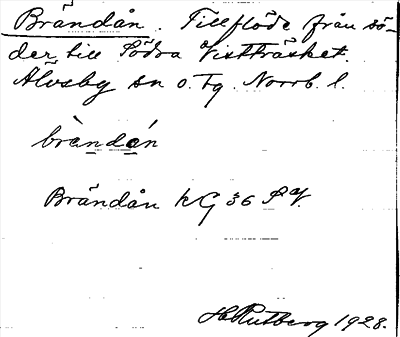 Brändån. Tillflöde från sö-
der till Södra Vistträsket.
Älvsby sn o. tg. Norrb. l.
brènda̍n
Brändån kG 36
H. Rutberg 1928.